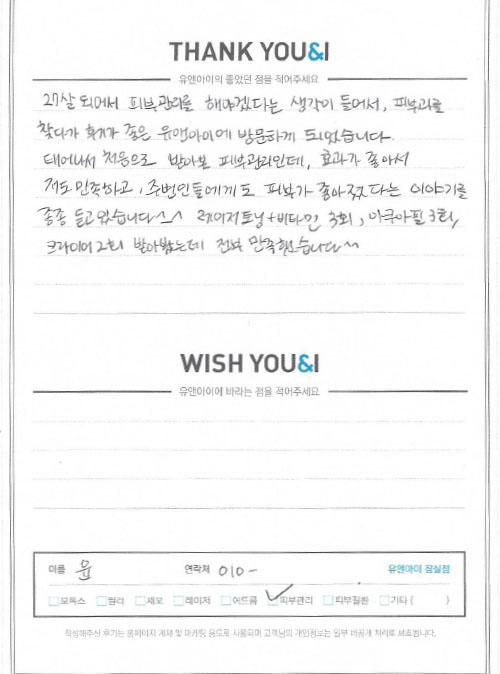 THANK YOU&I
유앤아이의 좋았던 점을 적어주세요
27살 되어서 피부관리를 해야겠다는 생각이 들어서, 피부과를
찾다가 후기가 좋은 유앤아이에 방문하게 되었습니다.
태어나서 처음으로 받아본 피부관리인데, 효과가 좋아서
저도 만족하고, 주변인들에게도 피부가 좋아졌다는 이야기를
종종 듣고 있습니다^^ 레이저토닝+비타민 3회, 아쿠아필 3회,
크라이어 2회 받아봤는데 전부 만족했습니다~
WISH YOU&I
유앤아이에 바라는 점을 적어주세요
이름 윤 연락처 010- 유앤아이 잠실점
보톡스 필러 제모 레이저 여드름 피부관리 피부질환 기타 ( )
작성해주신 후기는 홈페이지 게재 및 마케팅 용도로 사용되며 고객님의 개인정보는 일부 비공개 처리로 보호됩니다.